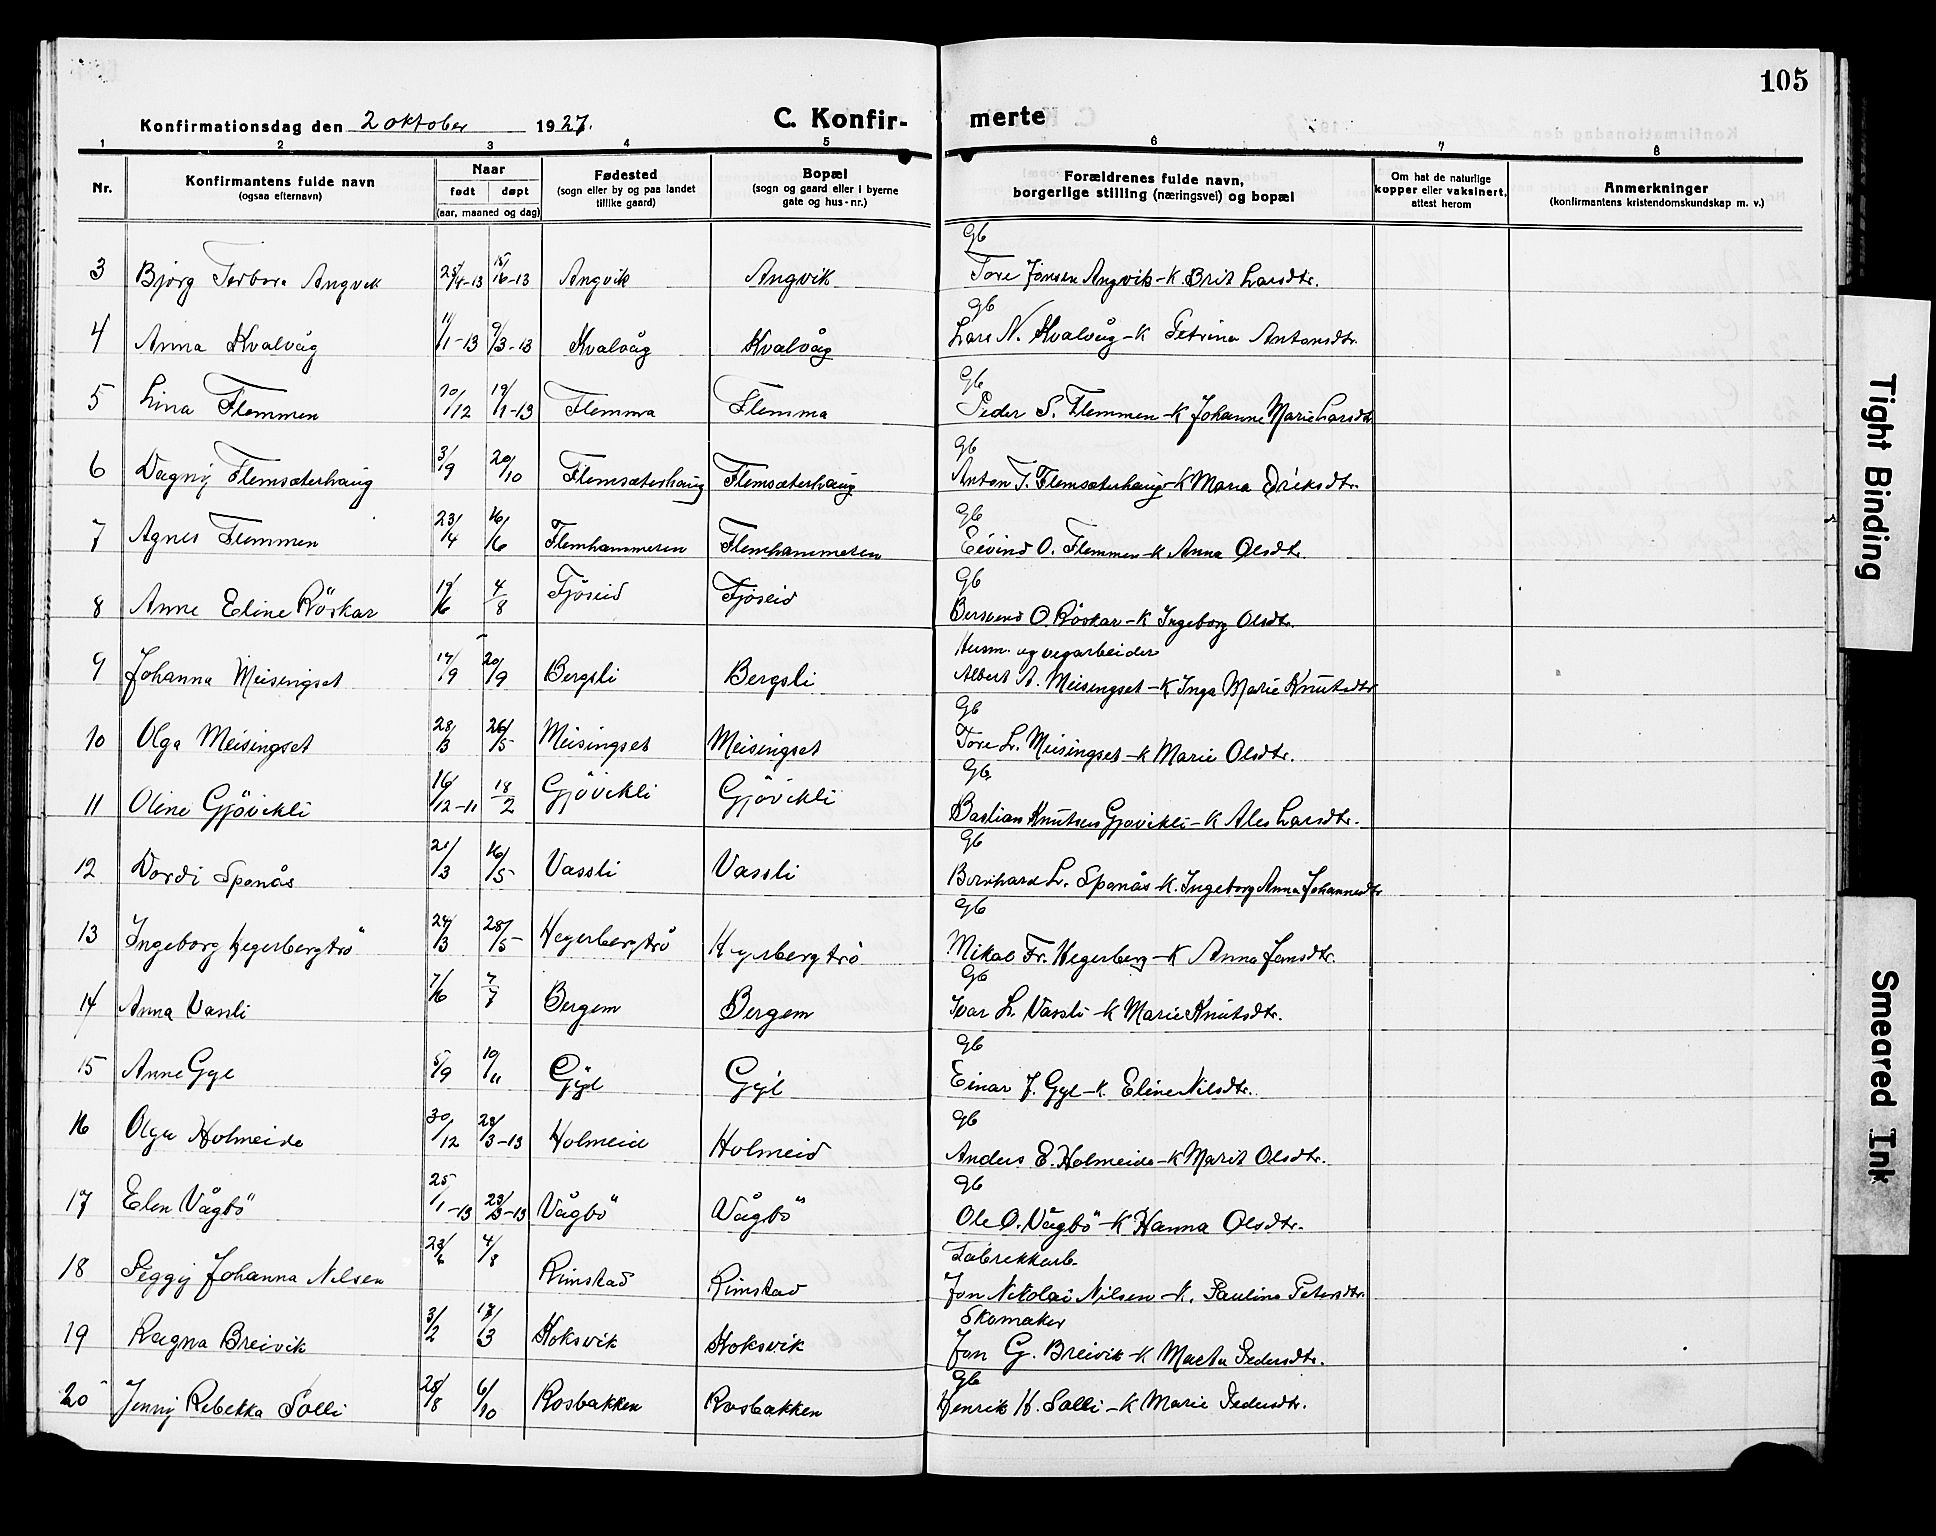 105
Konfirmationsdag den 2 oktober 1927. C. Konfir- merte
1 2 3 4 5 6 7 8
Nr. Konfirmantens fulde navn (ogsaa efternavn) Naar født døpt (aar, maaned og dag) Fødested (sogn eller by og paa landet tillike gaard) Bopæl (sogn og gaard eller i byerne gate og hus-nr.) Forældrenes fulde navn, borgerlige stilling (næringsvei) og bopæl Om hat de naturlige kopper eller vaksinert, attest herom Anmerkninger (konfirmantens kristendomskundskap m. v.)
Gb
3 Bjørg Torbore Angvik 25/4-13 15/6-13 Angvik Angvik Tore Jonsen Angvik - K. Brit Larsdtr.
Gb
4 Anna Kvalvåg 11/1-13 9/3-13 Kvalvåg Kvalvåg Lars N. Kvalvåg - K Petrina Antonsdtr.
Gb
5 Lina Flemmen 20/12 19/1-13 Flemma Flemma Peder S. Flemmen - K Johanne Marie Larsdtr
Gb
6 Dagny Flemsæterhaug 3/9 20/10 Flemsæterhaug Flemsæterhaug Anton T. Flemsæterhaug - K Marta Eriksdtr.
Gb
7 Agnes Flemmen 23/4 16/6 Flemhammeren Flemhammeren Eivind O. Flemmen - K Anna Olsdtr.
Gb
8 Anne Eline Röskar 19/6 4/8 Fjöseid Fjöseid Bersvend O. Röskar - K Ingeborg Olsdtr.
Husm. og vegarbeider
9 Johanna Meisingset 17/9 20/9 Bergsli Bergsli Albert A. Meisingset - K Inga Marie Knutsdtr
Gb
10 Olga Meisingset 28/3 26/5 Meisingset Meisingset Tore L. Meisingset - K Marie Olsdtr.
Gb.
11 Oline Gjövikli 16/12-11 18/2 Gjövikli Gjövikli Bastian Knutsen Gjövikli - K Ales Larsdtr.
Gb
12 Dordi Spenås 21/3 16/5 Vassli Vassli Bernhard L. Spenås - K. Ingeborg Anna Johannesdtr
Gb
13 Ingeborg Hegerbergtrö 24/3 28/5 Hegerbergtrö Hegerbergtrö Mikal Fr. Hegerberg - K Anna Jonsdtr.
Gb
14 Anna Vassli 7/6 7/7 Bergem Bergem Ivar L. Vassli - K Marie Knutsdtr.
Gb
15 Anne Gyl 5/9 10/11 Gyl Gyl Einar J. Gyl - K. Eline Nilsdtr.
Gb
16 Olga Holmeide 30/12 28/3-13 Holmeid Holmeid Anders E. Holmeide - K Marit Olsdtr.
Gb
17 Elen Vågbö 25/1-13 23/3-13 Vågbö Vågbö Ole O. Vågbö - K Hanna Olsdtr.
Fabrikkarb.
18 Siggij Johanna Nilsen 23/6 4/8 Rimstad Rimstad Jon Nikolai Nilsen - K. Paulina Petersdtr.
Skomaker
19 Ragna Breivik 3/2 17/3 Koksvik Koksvik Jon G. Breivik - K Marta Pedersdtr.
Gb
20 Jenny Rebekka Solli 25/8 6/10 Rosbakken Rosbakken Henrik H. Solli - K Marie Pedersdtr.
Tight Binding
Smeared Ink